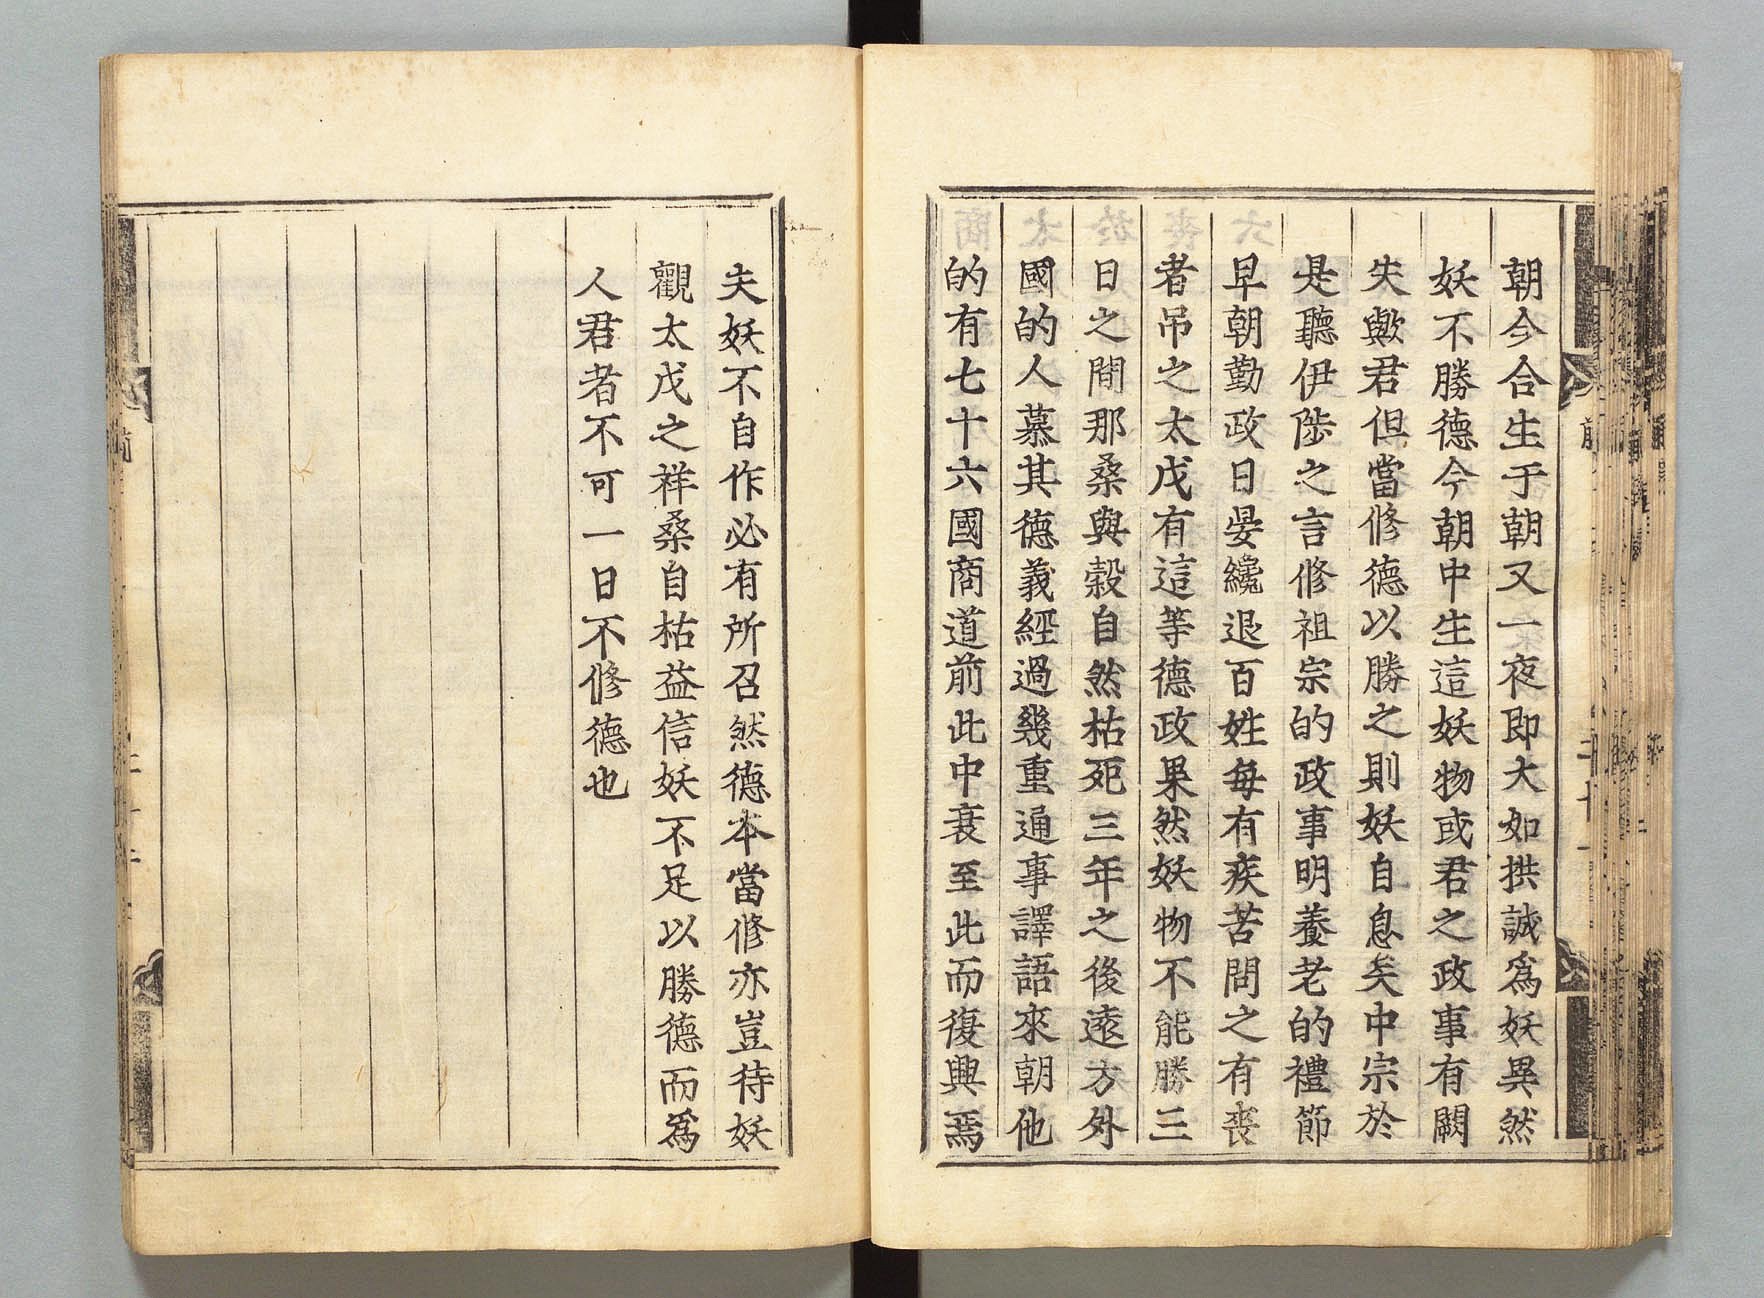 朝今合生于朝又一夜即大如拱誠爲妖異然
妖不勝德今朝中生這妖物或君之政事有闕
失歟君但當修德以勝之則妖自息矣中宗於
是聽伊陟之言修祖宗的政事明養老的禮節
早朝勤政日晏纔退百姓每有疾苦問之有喪
者吊之太戊有這等德政果然妖物不能勝三
日之間那桑與糓自然枯死三年之後遠方外
國的人慕其德義經過幾重通事譯語來朝他
的有七十六國商道前此中衰至此而復興焉
夫妖不自作必有所召然德本當修亦豈待妖
觀太戊之祥桑自枯益信妖不足以勝德而爲
人君者不可一日不修德也